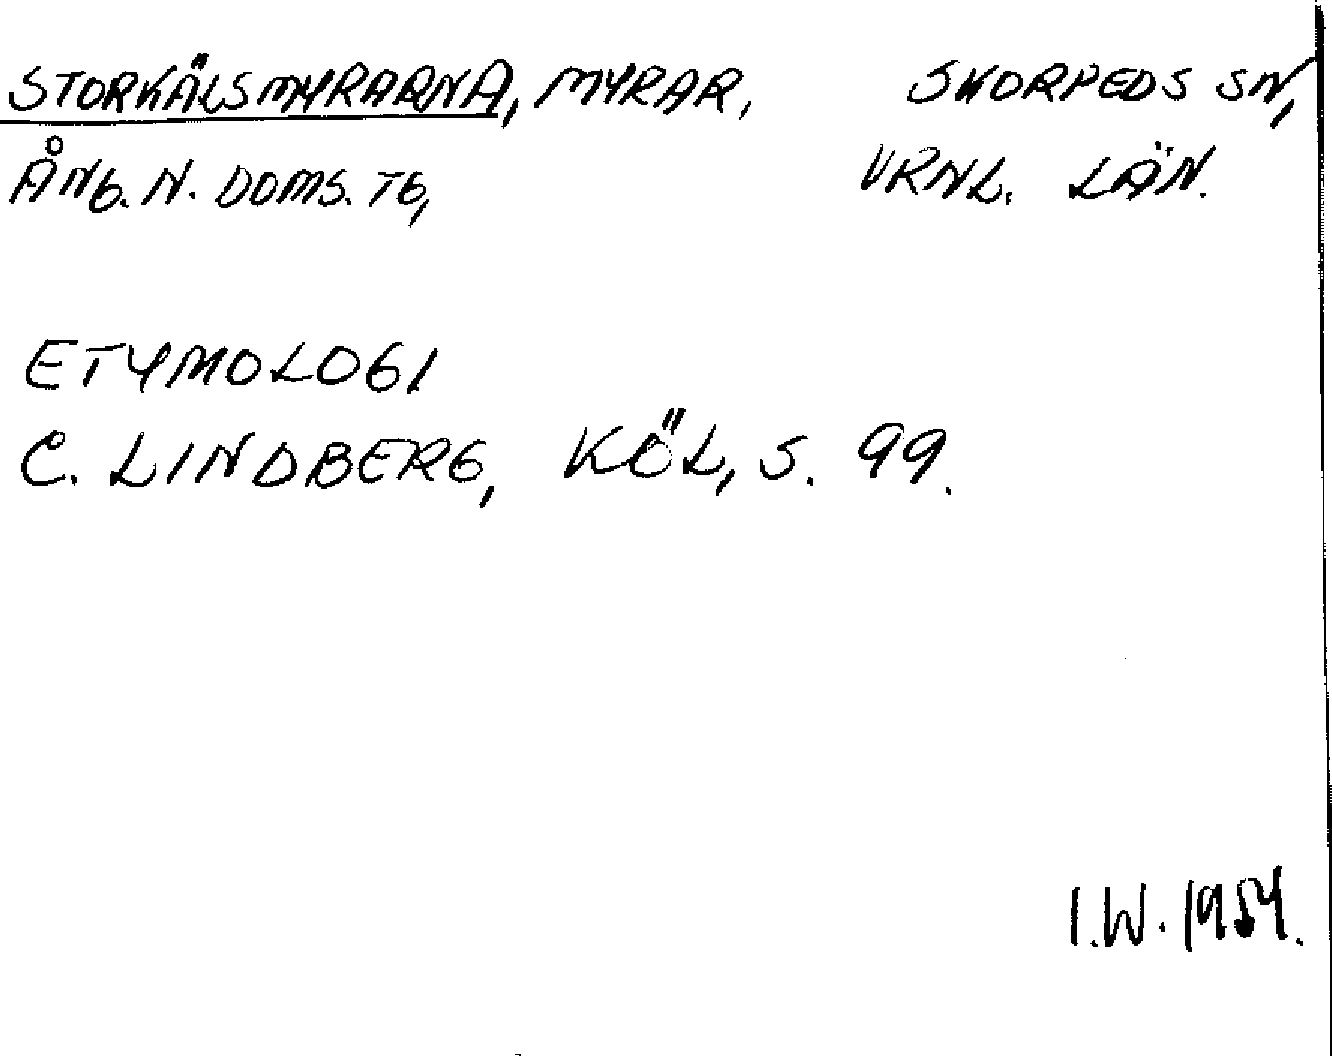 STORKÄLSMYRARNA, MYRAR, SKORPEDS SN,
ÅNG. N. DOMS. TG, VRNL. LÄN.
ETYMOLOGI
C. LINDBERG, KÖL, S. 99.
I.W. 1954.